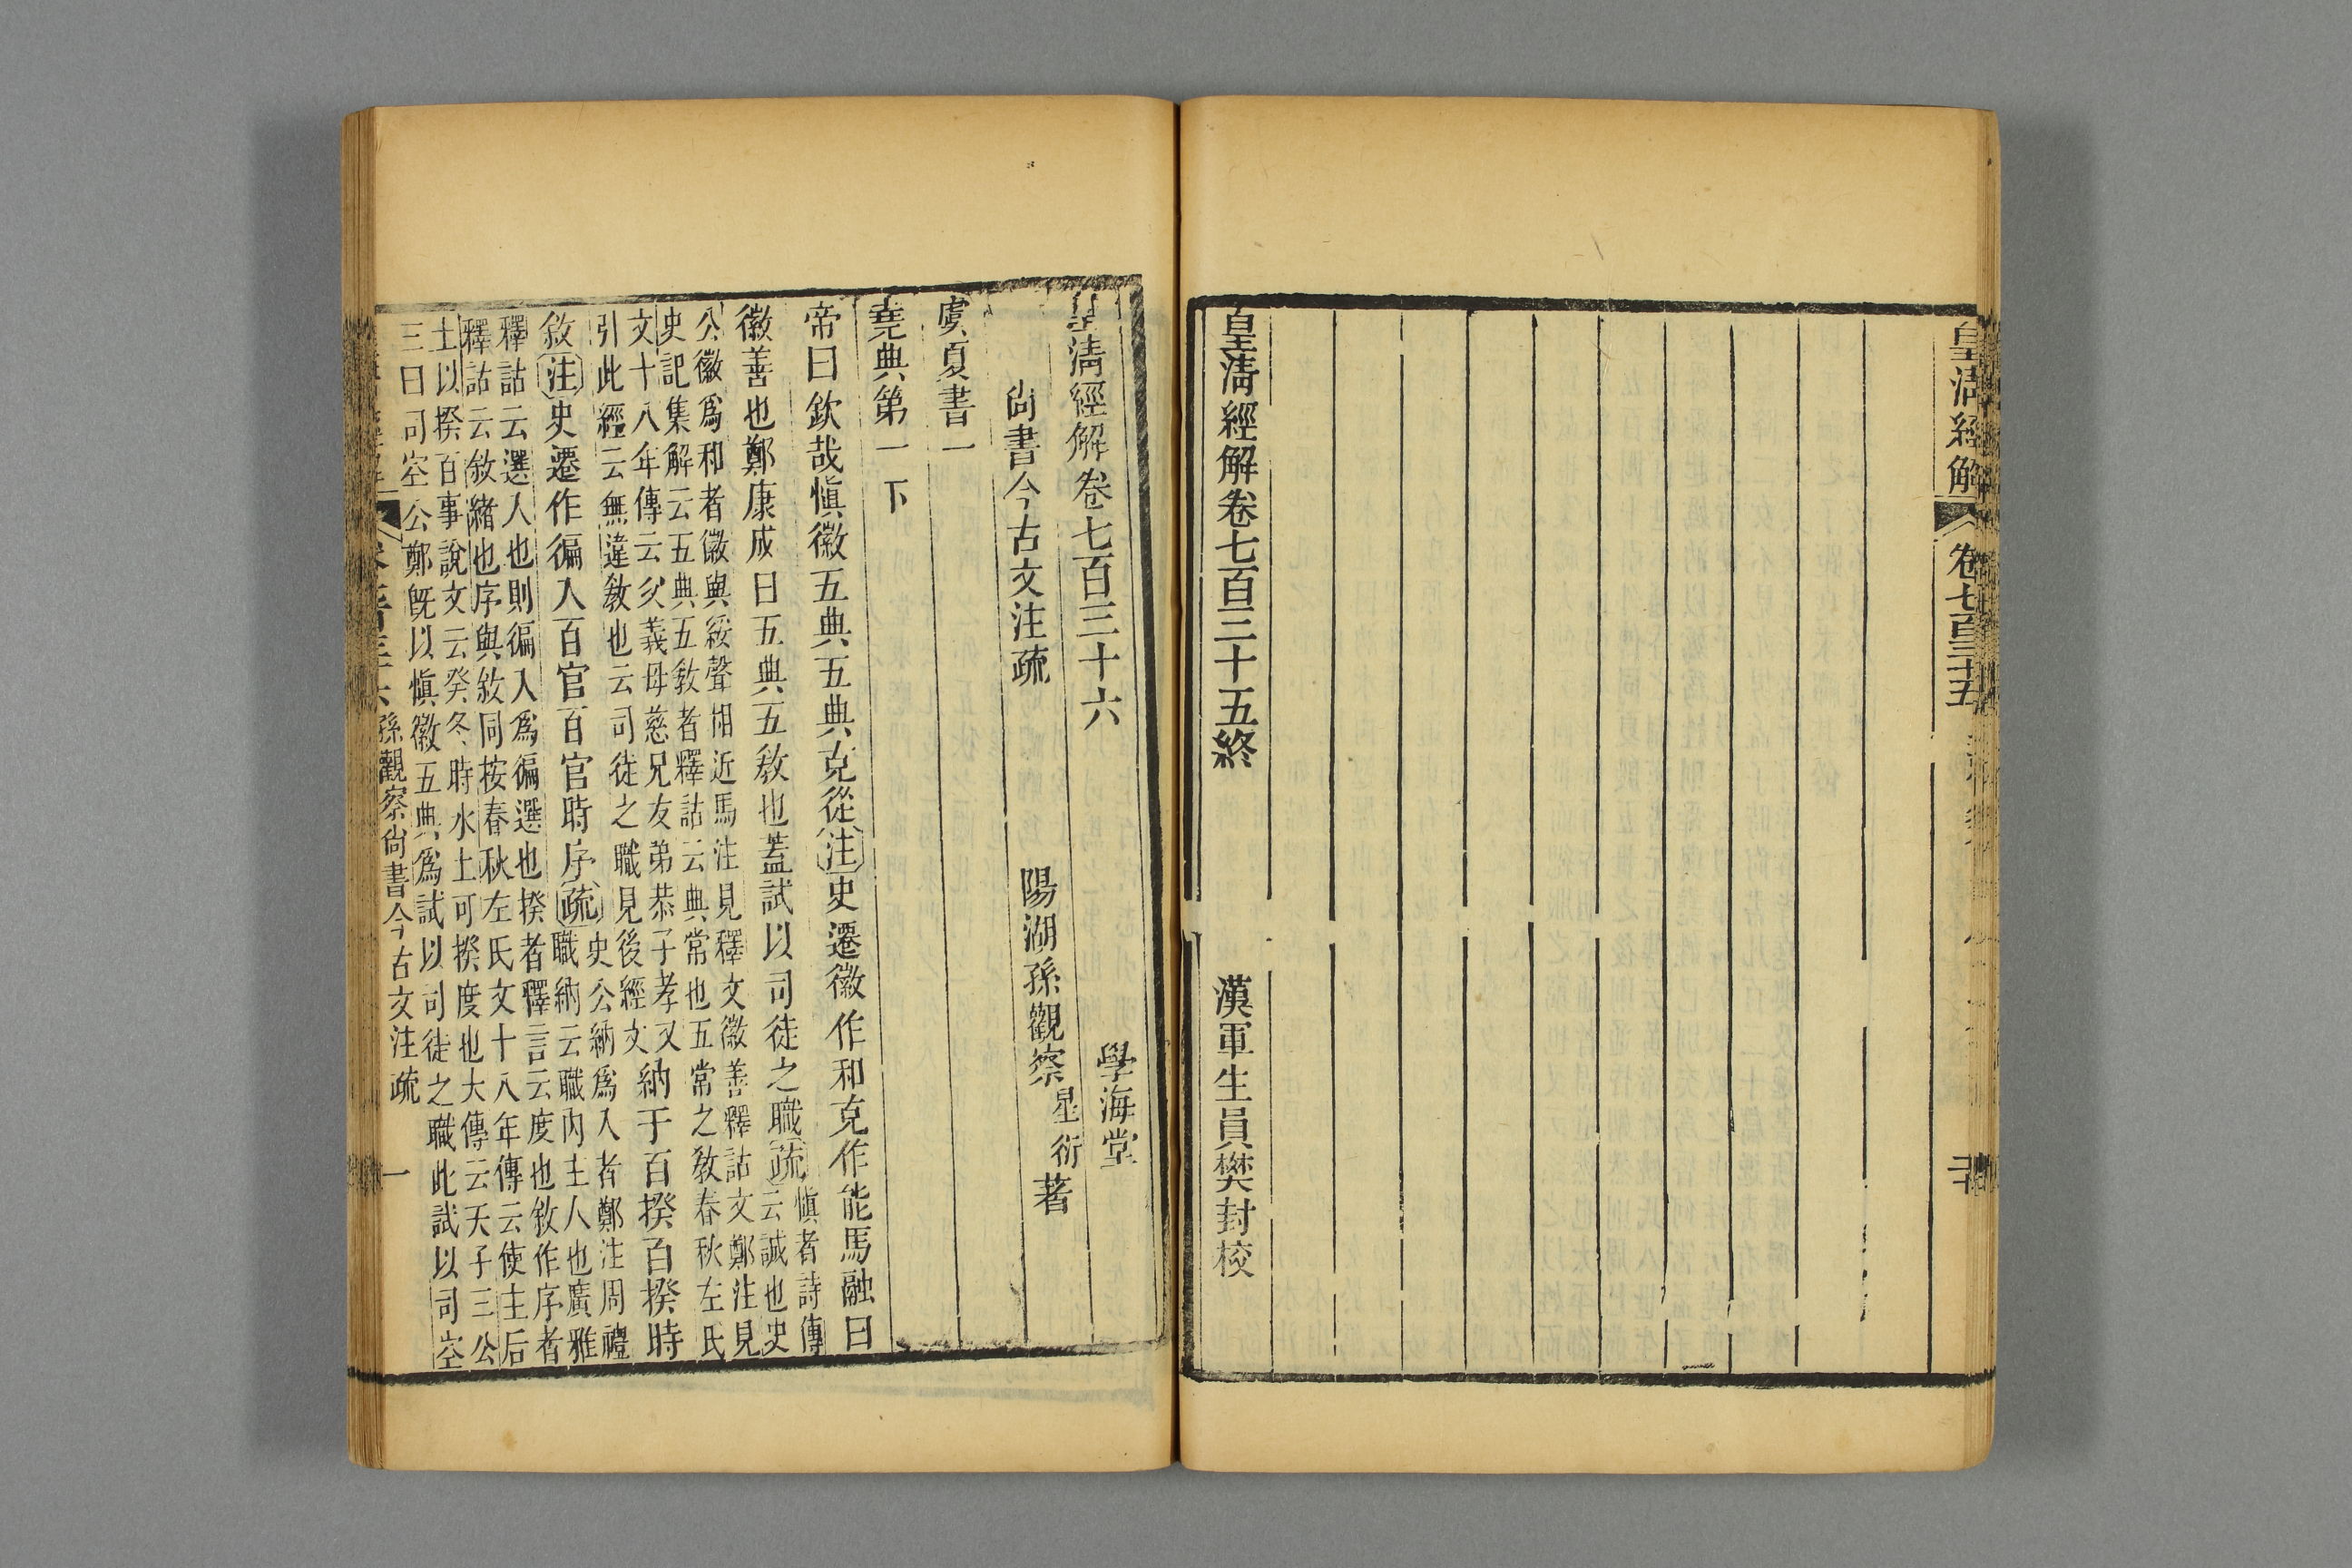 皇清經解
卷七百三十五
皇清經解卷七百三十五終
漢軍生員樊封校
皇清經解卷七百三十六
學海堂
尚書今古文注疏
陽湖孫觀察星衍著
虞夏書一
堯典第一下
帝曰欽哉愼徽五典五典克從注史遷徽作和克作能馬融曰
徽善也鄭康成曰五典五敎也蓋試以司徒之職疏愼者詩傳
云誠也史
公徽爲和者徽與綏聲相近馬注見釋文徽善釋詁文鄭注見
史記集解云五典五敎者釋詁云典常也五常之敎春秋左氏
文十八年傳云父義母慈兄友弟恭子孝又
引此經云無違敎也云司徒之職見後經文
納于百揆百揆時
敘注史遷作徧入百官百官時序疏
史公納爲入者鄭注周禮
職納云職內主人也廣雅
釋詁云選人也則徧入爲徧選也揆者釋言云度也敘作序者
釋詁云敘緒也序與敘同按春秋左氏文十八年傳云使主后
土以揆百事說文云癸冬時水土可揆度也大傳云天子三公
三曰司空公鄭旣以愼徽五典爲試以司徒之職此試以司空
孫觀察尚書今古文注疏
一